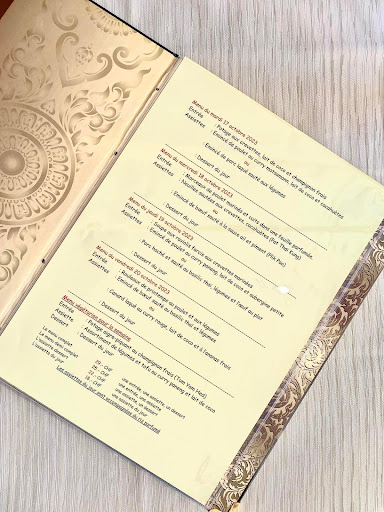 Menu du mardi 17 octobre 2023
Entrée : Potage aux crevettes, lait de coco et champignons frais
Assiettes : Emincé de poulet au curry massaman, lait de coco et cacahuètes
ou
: Emincé de porc laqué sauté aux légumes
: Dessert du jour
Menu du mercredi 18 octobre 2023
Entrée : Morceaux de poulet marinés et cuits dans une feuille parfumée
Assiettes : Nouilles sautées aux crevettes, cacahuètes (Pat Tai Kung)
ou
: Emincé de bœuf sauté à la sauce et piment (Pik Pao)
: Dessert du jour
Menu du jeudi 19 octobre 2023
Entrée : Soupe aux raviolis farcis aux crevettes marinées
Assiettes : Emincé de poulet au curry paneng, lait de coco et aubergine petite
ou
: Porc haché et sauté au basilic thaï, légumes et l'œuf au plat
: Dessert du jour
Menu du vendredi 20 octobre 2023
Entrée : Rouleaux de printemps au poulet et aux légumes
Assiettes : Emincé de bœuf sauté au basilic thaï et légumes
ou
: Canard laqué au curry rouge, lait de coco et à l'ananas frais
: Dessert du jour
Menu végétarien pour la semaine
Entrée : Potage aigre-piquant au champignon frais (Tom Yam Hed)
Assiette : Assortiment de légumes et tofu au curry paneng et lait de coco
Dessert : Dessert du jour
Le menu complet CHF une entrée, une assiette, un dessert
Le menu semi complet CHF une entrée, une assiette
L'assiette dessert CHF une assiette, un dessert
L'assiette du jour CHF une assiette du jour
Les assiettes du jour sont accompagnées du riz parfumé